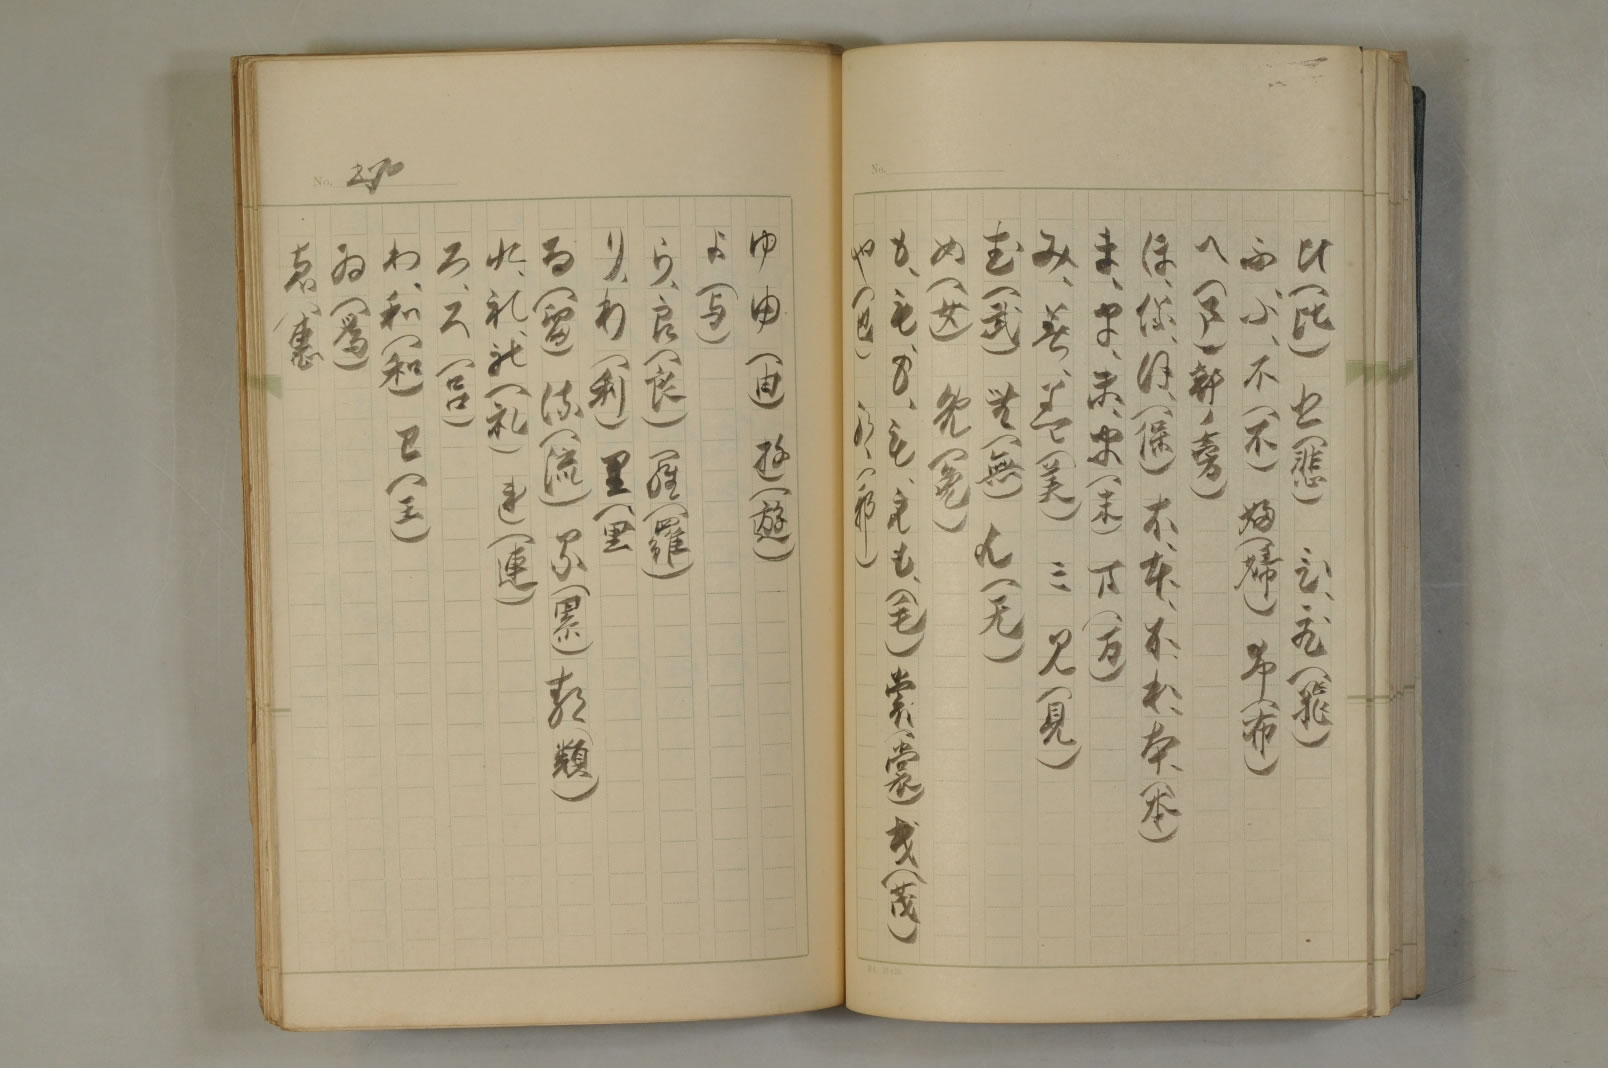 No.
比(比) 悲(悲) 飛、飛(飛)
ふ、ふ、不(不) 婦(婦) 布(布)
へ
ほ、保、保、(保) 本、本、本、本、本、(本)
ま、ま、末、ま(末) 万(万)
み、美、美(美) 三 見(見)
む(武) 無(無) 无(无)
め(女) 免(免)
も、も、も、も、も、も、(毛) 裳(裳) 茂(茂)
や(也) 那(那)
No. 270
ゆ 由(由) 遊(遊)
よ(与)
ら、良(良) 羅(羅)
り、わ(利) 里(里
る(留) 流(流) 累(累) 類(類)
れ、礼、礼(礼) 連(連)
ろ、ろ(呂)
わ、和(和) 王(王)
ゐ(為)